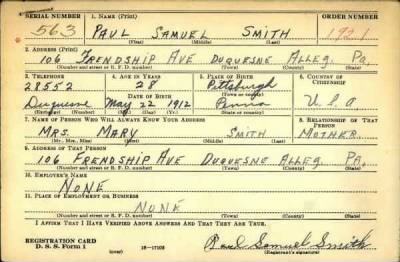 SERIAL NUMBER 1. NAME (Print) ORDER NUMBER
563 PAUL SAMUEL SMITH 1921
(First) (Middle) (Last)
2. ADDRESS (Print)
106 FRENDSHIP AVE DUQUESNE ALLEG. PA.
(Number and street or R. F. D. number) (Town) (County) (State)
3. TELEPHONE 4. AGE IN YEARS 5. PLACE OF BIRTH 6. COUNTRY OF CITIZENSHIP
28552 28 Pittsburgh
DATE OF BIRTH (Town or county)
Duquesne May 22 1912 Penna U.S.A
(Exchange) (Number) (Mo.) (Day) (Yr.) (State or country)
7. NAME OF PERSON WHO WILL ALWAYS KNOW YOUR ADDRESS 8. RELATIONSHIP OF THAT PERSON
MRS. MARY SMITH MOTHER
(Mr., Mrs., Miss) (First) (Middle) (Last)
9. ADDRESS OF THAT PERSON
106 FRENDSHIP AVE DUQUESNE ALLEG. PA.
(Number and street or R. F. D. number) (Town) (County) (State)
10. EMPLOYER'S NAME
NONE
11. PLACE OF EMPLOYMENT OR BUSINESS
NONE
(Number and street or R. F. D. number) (Town) (County) (State)
I AFFIRM THAT I HAVE VERIFIED ABOVE ANSWERS AND THAT THEY ARE TRUE.
REGISTRATION CARD
D. S. S. Form 1 (over) 16—17105 Paul Samuel Smith
(Registrant's signature)